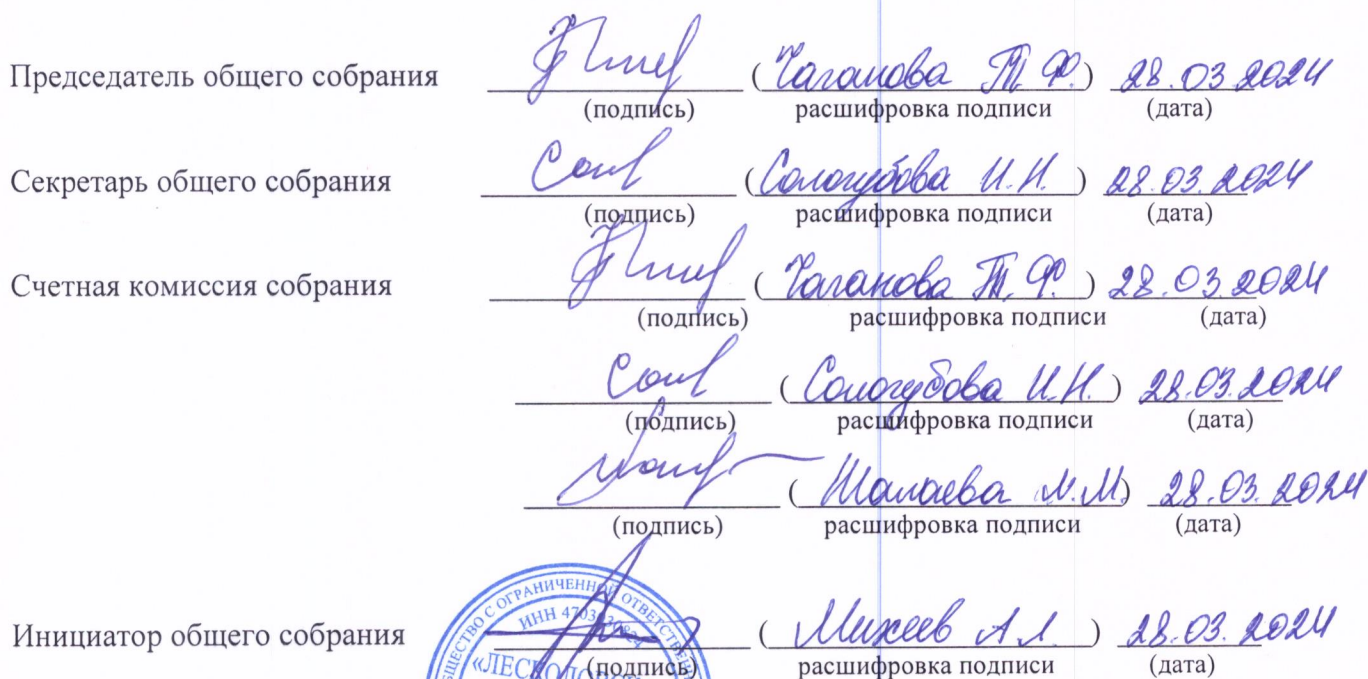 Председатель общего собрания (Чаганова Т.Ф.) 28.03.2024
(подпись) расшифровка подписи (дата)
Секретарь общего собрания (Сологубова И.Н.) 28.03.2024
(подпись) расшифровка подписи (дата)
Счетная комиссия собрания (Чаганова Т.Ф.) 28.03.2024
(подпись) расшифровка подписи (дата)
(Сологубова И.Н.) 28.03.2024
(подпись) расшифровка подписи (дата)
(Шалаева М.М.) 28.03.2024
(подпись) расшифровка подписи (дата)
ОБЩЕСТВО С ОГРАНИЧЕННОЙ
ИНН
Инициатор общего собрания (Михеев А.Л.) 28.03.2024
(подпись) расшифровка подписи (дата)